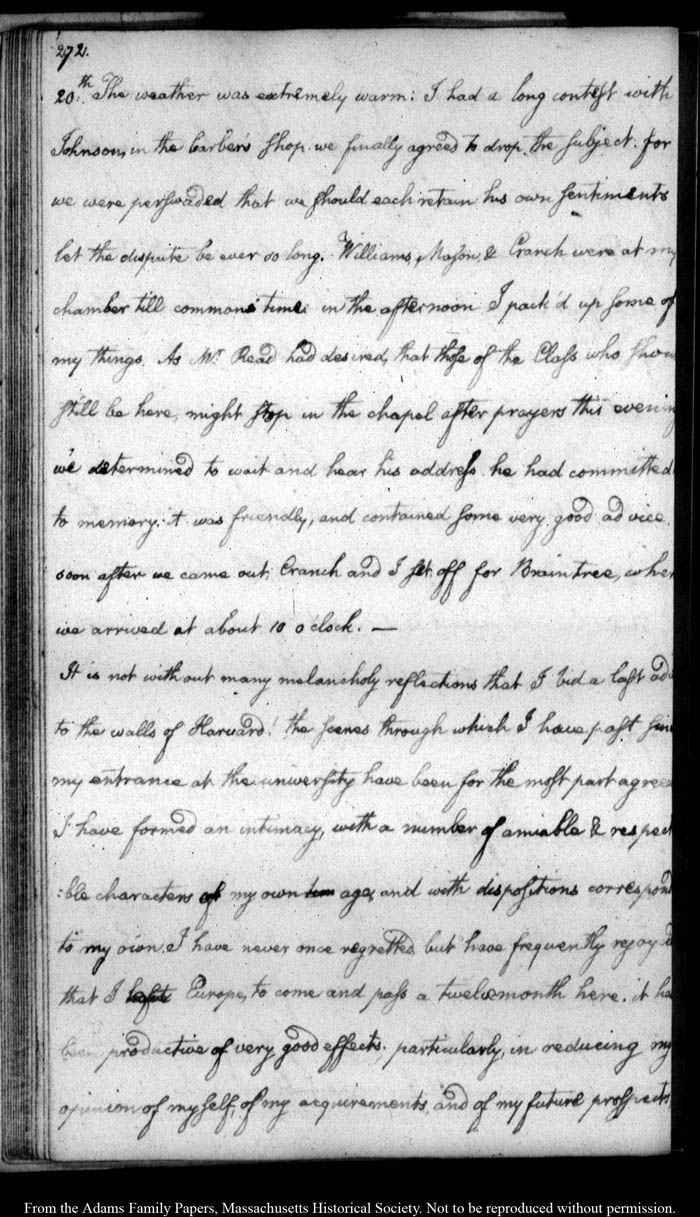 272.
20.th The weather was extremely warm: I had a long contest with
Johnson, in the barber's shop. we finally agreed to drop the subject. for
we were perswaded that we should each retain his own sentiments
let the dispute be ever so long. Williams, Mason, & Cranch were at my
chamber till commons time: in the afternoon I pack'd up some of
my things. As Mr. Read had desired, that those of the Class who shou
still be here, might stop in the chapel after prayers this evening
we determined to wait and hear his address. he had committed
to memory: it was friendly, and contained some very good advice.
soon after we came out, Cranch and I set off for Braintree, wher
we arrived at about 10 o'clock. —
It is not without many melancholy reflections that I bid a last ad
to the walls of Harvard! the scenes through which I have past sin
my entrance at the university have been for the most part agree
I have formed an intimacy, with a number of amiable & respect
:ble characters of my own age, and with dispositions correspond
to my own. I have never once regretted, but have frequently rejoyc'd
that I left Europe, to come and pass a twelvemonth here. it ha
been productive of very good effects; particularly, in reducing my
opinion of myself, of my acquirements, and of my future prospects
From the Adams Family Papers, Massachusetts Historical Society. Not to be reproduced without permission.